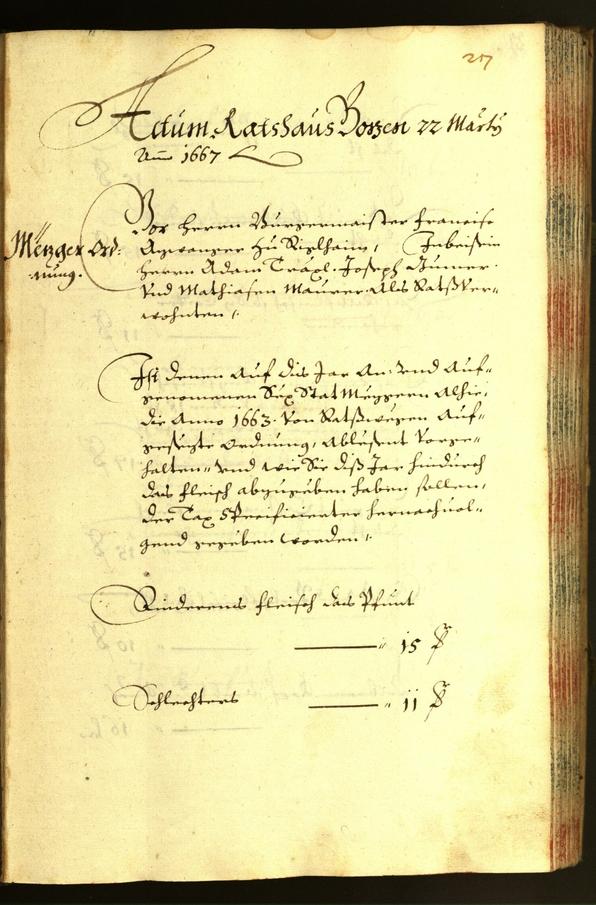 27
Actum Ratshaus Bozen 22 Marty
Anno 1667
Mezger Ord:
nung.
Vor Herrn Burgermaister Francisc
Agwanger zu Siglhaim, In beisein
Herrn Adam Träxl, Joseph
vnd Mathiasen Maurer Als Ratßver-
wohnten /.
Ist denen Auf dis Jar An: vnd Auf-
genomenen Sex Stat Mezgern Alhie,
die Anno 1663 von Ratßwegen Auf-
gesezte Ordnung, Ablesent vorge-
halten, vnd wie Sie diß Jar hindurch
das Fleisch abzugeben haben sollen,
der Tax Specificierter hernachuol-
gend gegeben worden /.
Rinderens Fleisch das Pfunt
15 ₰
Schlechters 11 ₰